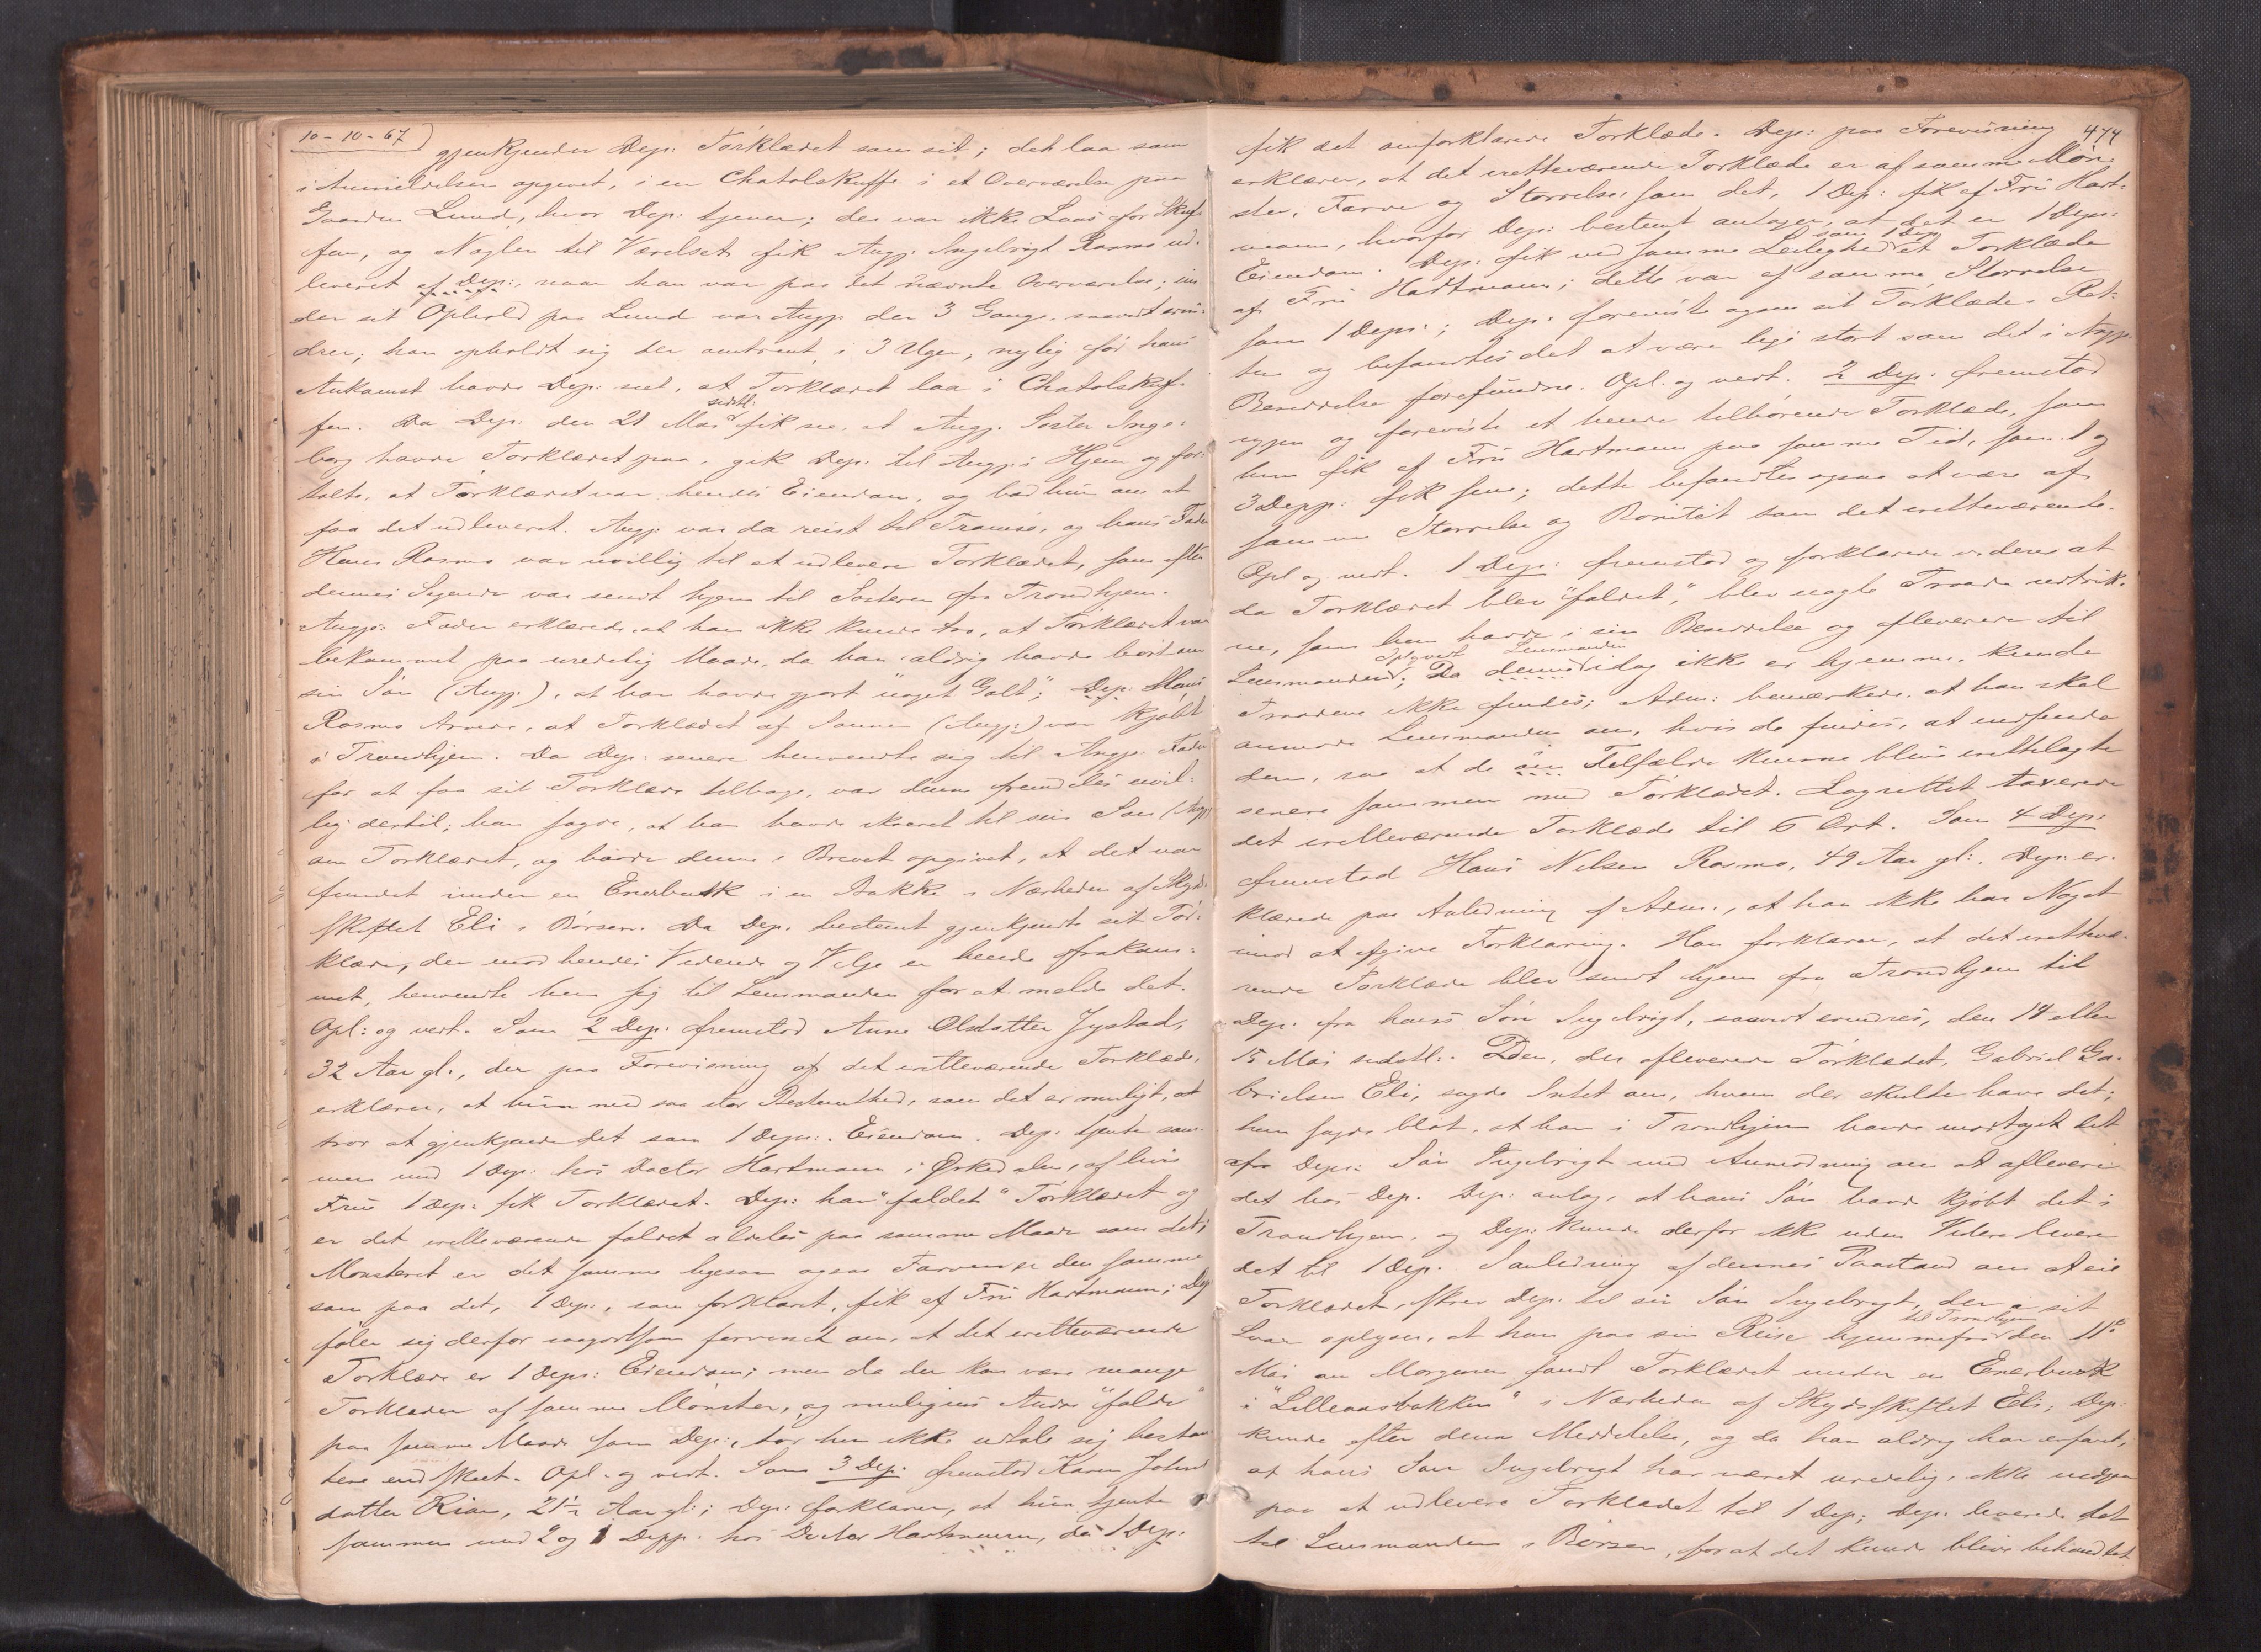 10-10-67)
gjenkjender Dep: Tørklædet som sit; det laa som
i Anmeldelsen opgivet, i en Chatolskuffe i et Overværelse paa
Gaarden Lund, hvor Dep: tjener; der var ikke Laas for Skuf-
fen, og Nøglen til Værelset fik Angj. Ingebrigt Rasmo ud-
leveret af Dep:, naar han var paa det nævnte Overværelse; un-
der sit Ophold paa Lund var Angj. der 3 Gange, saavidt erin-
dres; han opholdt sig der omtrent i 3 Uger, nylig før hans
Ankomst havde Dep: seet, at Tørklædet laa i Chatolskuf-
fen. Da Dep: den 21 Mai sidstl: fik se, at Angj. Søster Inge-
borg havde Tørklædet paa, gik Dep: til Angj:s Hjem og for-
talte, at Tørklædet var hendes Eiendom, og bad hun om at
faa det udleveret. Angj: var da reist til Tromsø, og hans Fader
Hans Rasmo var uvillig til at udlevere Tørklædet, som efter
dennes Sigende var sendt hjem til Søsteren fra Trondhjem.
Angjs: Fader erklærede, at han ikke kunde tro, at Tørklædet var
bekommet paa uredelig Maade, da han aldrig havde hørt om
sin Søn (Angj:), at han havde gjort "noget Galt"; Dep: Hans
Rasmo troede, at Tørklædet af Sønnen (Angj:) var kjøbt
i Trondhjem. Da Dep: senere henvendte sig til Angjs Fader
for at faa sit Tørklæde tilbage, var denne fremdeles uvil-
lig dertil; han sagde, at han havde skrevet til sin Søn (Angj)
om Tørklædet, og havde denne i Brevet opgivet, at det var
fundet under en Enerbusk i en Bakke i Nærheden af Skyds-
skiftet Eli i Børsen. Da Dep. bestemt gjenkjendte sit Tør-
klæde, der mod hendes Vidende og Vilje er hende frakom-
met, henvendte hun sig til Lensmanden for at melde det.
Opl: og vedt. Som 2 Dep: fremstod Anne Olsdatter Jystad,
32 Aar gl., der paa Forevisning af det iretteværende Tørklæde,
erklærer, at hun med saa stor Bestemthed, som det er muligt, at
tror at gjenkjende det som 1 Deps: Eiendom. Dep: tjente sam-
men med 1 Dep: hos Doctor Hartmann i Ørkedalen, af hvis
Frue 1 Dep: fik Tørklædet. Dep: har "foldet" Tørklædet og
er det iretteværende foldet aldeles paa samme Maade som det;
Mønsteret er det samme ligesom ogsaa Farven er den samme
som paa det, 1 Dep:, som forklaret, fik af Frue Hartmann; Dep
føler sig derfor saagodtsom forvisset om, at det iretteværende
Tørklæde er 1 Deps: Eiendom; men da der kan være mange
Tørklæder af samme Mønster, og muligens Andre "folde"
paa samme Maade som Dep:, tør hun ikke udtale sig bestem-
tere end skeet. Opl. og vedt. Som 3 Dep: fremstod Karen Johns-
datter Rian, 21½ Aar gl:; Dep: forklarer, at hun tjente
sammen med 2 og 1 Depp. hos Doctor Hartmann, da 1 Dep:
474
fik det omforklarede Tørklæde. Dep: paa Forevisning
erklærer, at det iretteværende Tørklæde er af samme Møn-
ster, Farve og Størrelse, som det, 1 Dep: fik af Frue Hart-
mann, hvorfor Dep: bestemt antager, at det er 1 Deps:
Eiendom. Dep: fik ved samme Leilighed som 1 Dep. et Tørklæde
af Frue Hartmann; dette var af samme Størrelse
som 1 Deps:; Dep: foreviste ogsaa sit Tørklæde. Ret-
ten og befandtes det at være lige stort som det i Angj:
Besiddelse forefundne. Opl. og vedt. 2 Dep. fremstod
igjen og foreviste et hende tilhørende Tørklæde, som
hun fik af Frue Hartmann paa samme Tid, som 1 og
3 Depp: fik sine; dette befandtes ogsaa at være af
samme Størrelse og Bonitet som det iretteværende.
Opl og vedt. 1 Dep: fremstod og forklarede videre at
da Tørklædet blev "foldet," blev nogle Traade udtruk-
ne, som hun havde i sin Besiddelse og afleverede til
Lensmanden; Oplyst Da denne Lensmanden idag ikke er hjemme, kunde
Traadene ikke findes; Adm: bemærkede, at han skal
anmode Lensmanden om, hvis de findes, at indsende
dem, saa at de i Tilfælde kunne blive irettelagte
senere sammen med Tørklædet. Lagrettet taxerede
det iretteværende Tørklæde til 6 Ort. Som 4 Dep:
fremstod Hans Nilsen Rasmo, 49 Aar gl:. Dep: er-
klærede paa Anledning af Adm., at han ikke har Noget
imod at afgive Forklaring. Han forklarer, at det irettevæ-
rende Tørklæde blev sendt hjem fra Trondhjem til
Dep. fra hans Søn Ingebrigt, saavidt erindres, den 14 eller
15 Mai sidstl:. Den, der afleverede Tørklædet, Gabriel Ga-
brielsen Eli, sagde Intet om, hvem der skulde have det;
hun sagde blot, at han i Trondhjem havde modtaget det
fra Deps: Søn Ingebrigt med Anmodning om at aflevere
det hos Dep. Dep: antog, at hans Søn havde kjøbt det i
Trondhjem, og Dep: kunde derfor ikke uden Videre levere
det til 1 Dep. I Anledning af dennes Paastand om at eie
Tørklædet, skrev Dep. til sin Søn Ingebrigt, der i sit
Svar oplyser, at han paa sin Reise hjemmefra til Trondhjem den 11te
Mai om Morgenen fandt Tørklædet under en Enerbusk
i "Lilleaasbakken" i Nærheden af Skydsskiftet Eli; Dep:
kunde efter denne Meddelelse, og da han aldrig har erfaret,
at hans Søn Ingebrigt har været uredelig, ikke indgaa
paa at udlevere Tørklædet til 1 Dep; Dep: leverede det
til Lensmanden i Børsen, for at det kunde blive behandlet